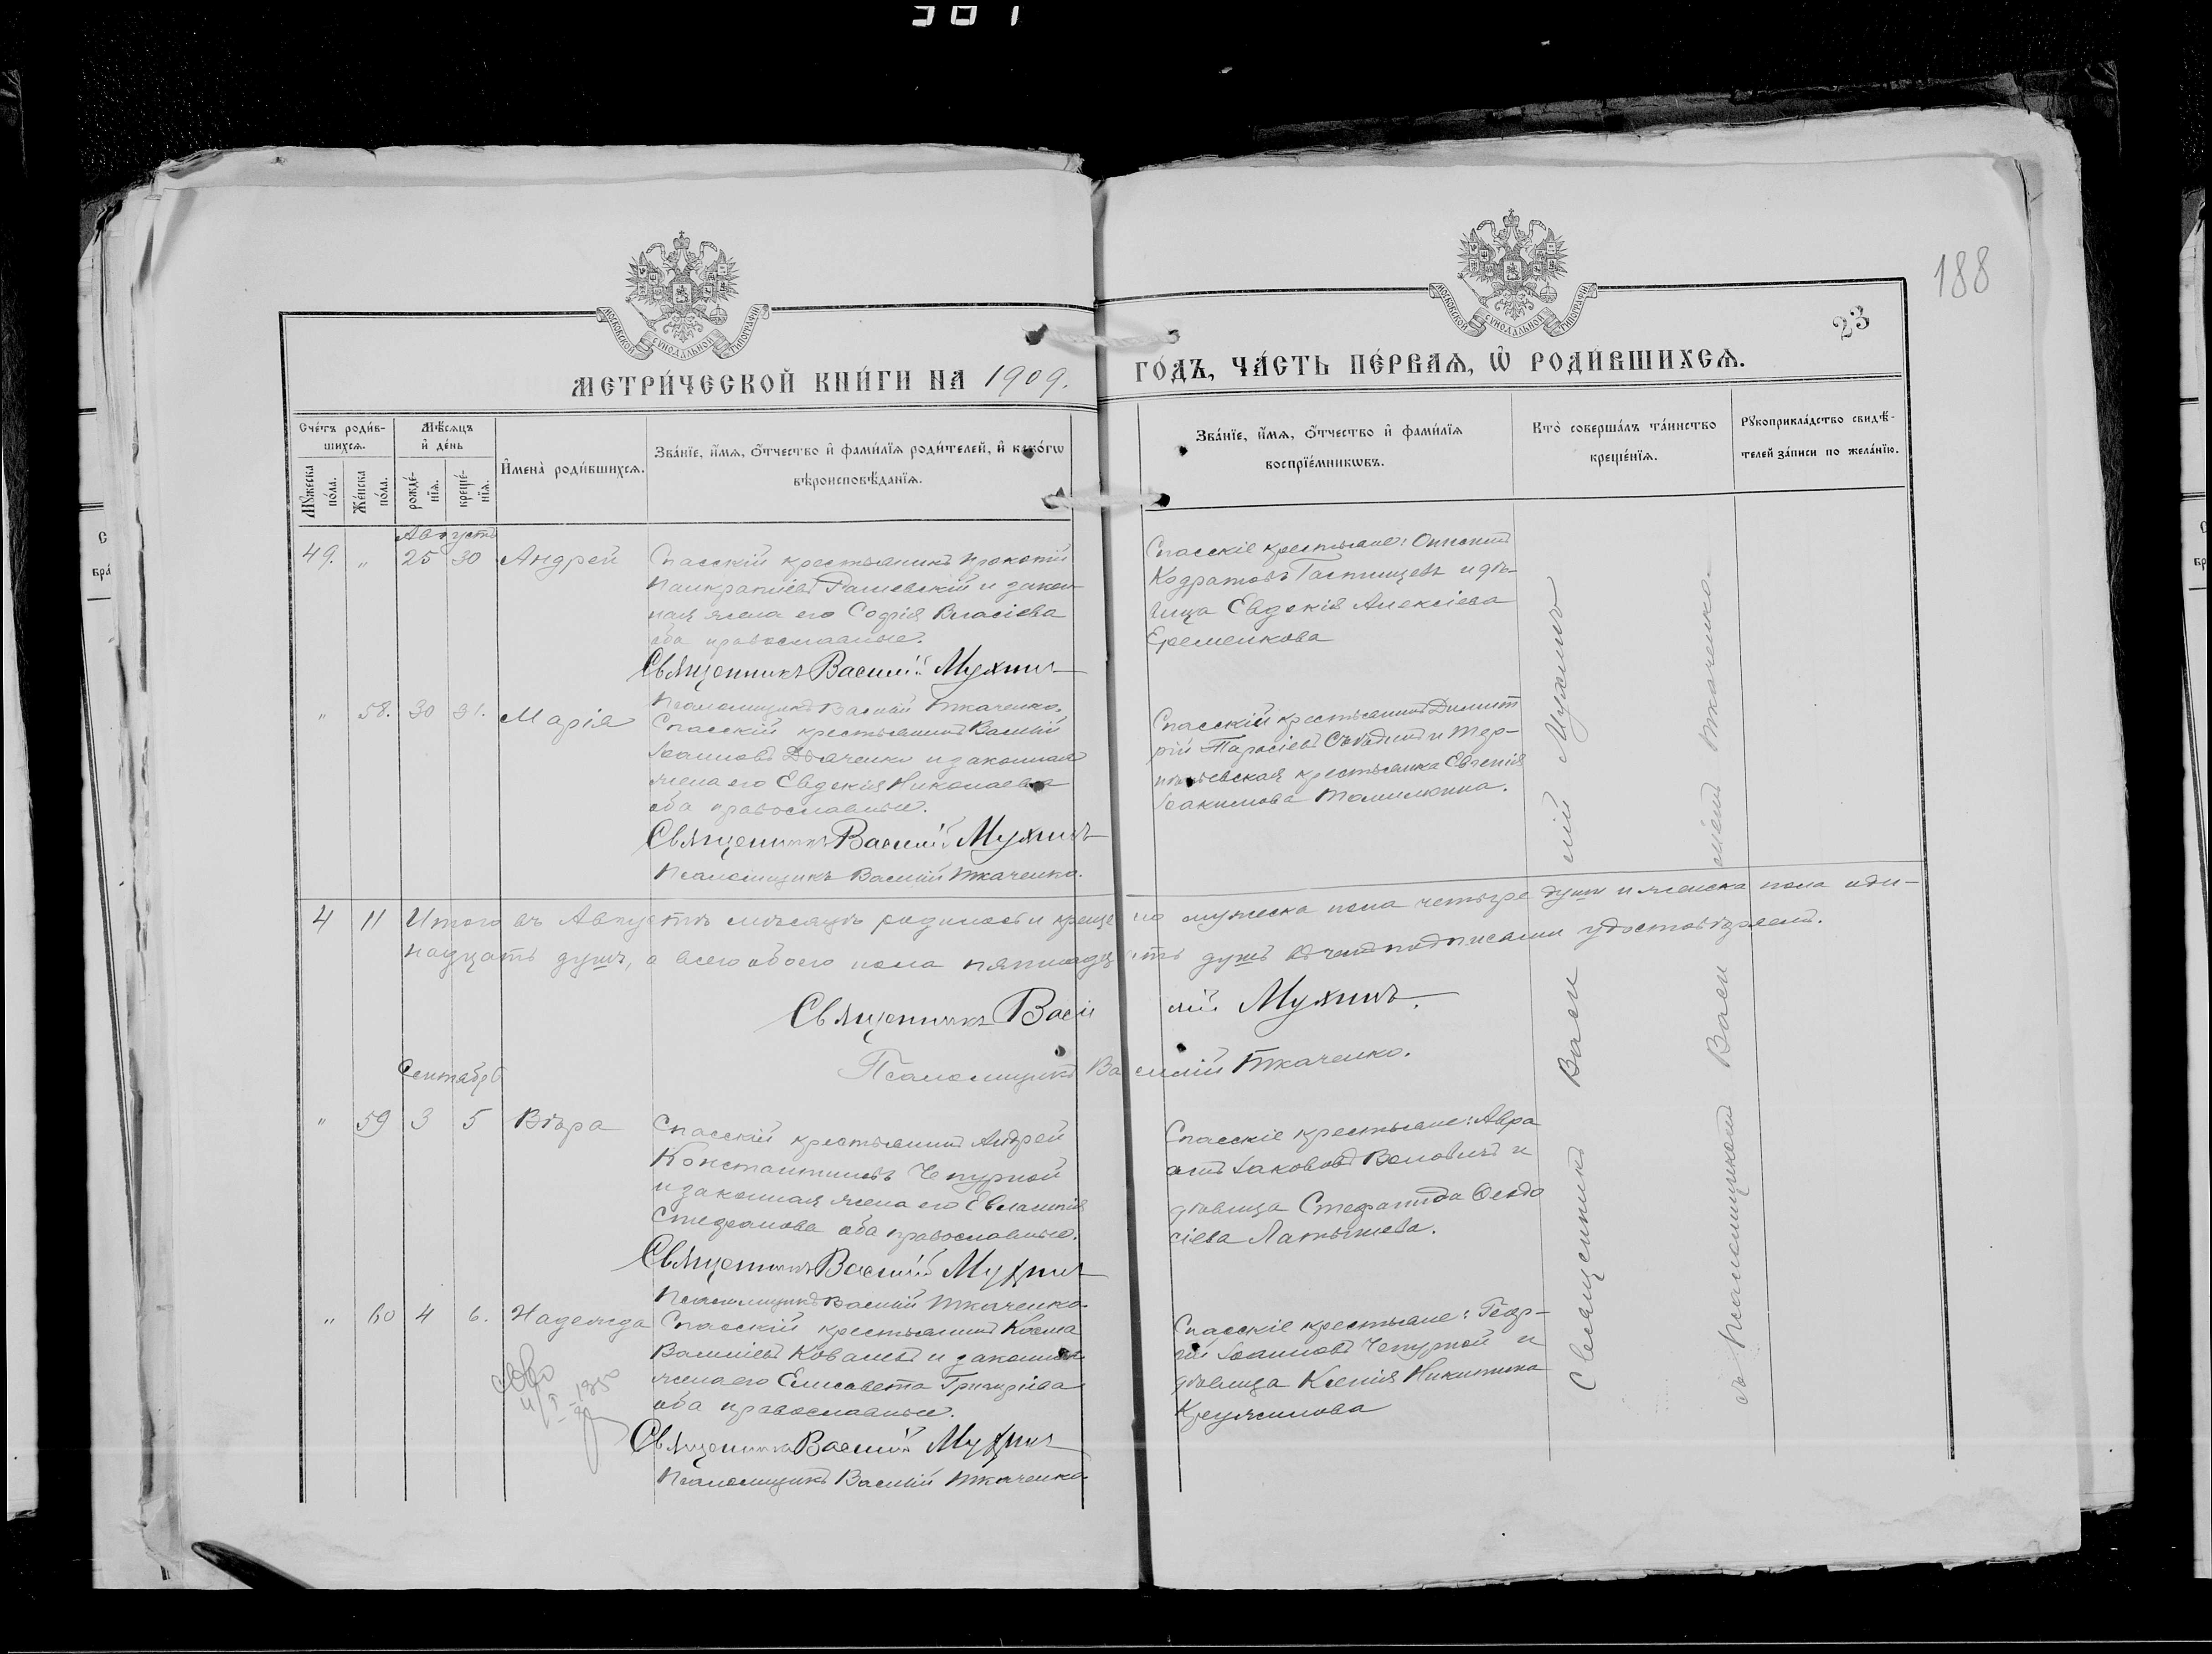 188
23
МОСКОВСКОЙ СѴНОДАЛЬНОЙ ТИПОГРАФІИ
МОСКОВСКОЙ СѴНОДАЛЬНОЙ ТИПОГРАФІИ
МЕТРИ́ЧЕСКОЙ КНИ́ГИ НА 1909. ГО́ДЪ, ЧА́СТЬ ПЕ́РВАѦ, Ѡ҆ РОДИ́ВШИХСѦ.
Сче́тъ роди́в-
шихсѧ.
Мꙋ́жеска
по́ла.
Же́нска
по́ла.
Мѣ́сѧцъ
и҆ де́нь
рожде́-
нїѧ.
креще́-
нїѧ.
И҆мена̀ роди́вшихсѧ.
Зва́нїе, и҆́мѧ, ѻ҆́тчество и҆ фамі́лїѧ роди́телей, и҆ како́гѡ
вѣроисповѣ́данїѧ.
Зва́нїе, и҆́мѧ, ѻ҆́тчество и҆ фамі́лїѧ
воспрїе́мникѡвъ.
Кто̀ соверша́лъ та́инство
креще́нїѧ.
Рꙋкоприкла́дство свидѣ́-
телей за́писи по жела́нїю.
Августъ
49. " 25 30 Андрей
Спасскій крестьянинъ Прокопій
Панкратіевъ Рашевскій и закон
ная жена его Софія Власіева
оба православные.
Священникъ Василій Мухинъ
Псаломщикъ Василій Ткаченко.
Спасскіе крестьяне:
Кодратовъ и дѣ-
вица Евдокія Алексіева
Еременкова
" 58. 30 31. Марія
Спасскій крестьянинъ Василій
Іоанновъ Дьяченко и законная
жена его Евдокія Николаева
оба православные.
Священникъ Василій Мухинъ
Псаломщикъ Василій Ткаченко.
Спасскій крестьянинъ Димит
рій Тарасіевъ и Тер-
крестьянка Евгенія
Іоакимова Томилкина.
4 11 Итого въ Августѣ мѣсяцѣ родилось и креще но мужеска пола четыре душ и женска пола оди-
надцать душъ, а всего обоего пола пятнадц ать душъ въ чемъ подписами удостовѣряемъ.
Священникъ Васи лій Мухинъ.
Псаломщикъ Ва силій Ткаченко.
Сентябрь
" 59 3 5 Вѣра
Спасскій крестьянинъ Андрей
Константиновъ Чепурной
и законная жена его Евлампія
Стефанова оба православные.
Священникъ Василій Мухинъ
Псаломщикъ Василій Ткаченко.
Спасскіе крестьяне: Авра
амъ Іакововъ и
дѣвица Стефанида Ѳеодо
сіева Латышева.
" 60 4 6. Надежда
Спасскій крестьянинъ Косма
Василіевъ Ковалевъ и законная
жена его Елисавета Григоріева
оба православные.
Священникъ Василій Мухинъ
Псаломщикъ Василій Ткаченко.
Спасскіе крестьяне: Геор-
гій Іоанновъ Чепурной и
дѣвица Ксенія Никитина
Священникъ Васи лій Мухинъ
съ псаломщикомъ Васи ліемъ Ткаченко.